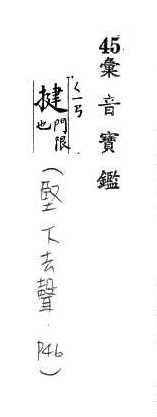 45彙音寶鑑
揵門限也
ㄑㄧㄢˊ
(堅下去聲. P46)